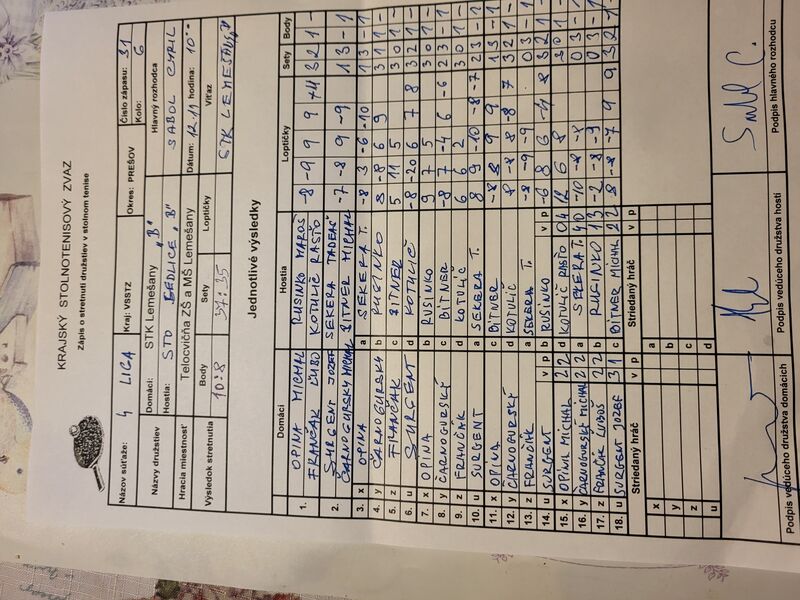 KRAJSKÝ STOLNOTENISOVÝ ZVAZ
Zápis o stretnutí družstiev v stolnom tenise
Názov súťaže: 4 LIGA Kraj: VSSTZ Okres: PREŠOV Číslo zápasu: 31
Kolo: 6
Názvy družstiev Domáci: STK Lemešany "B" Hlavný rozhodca
Hostia: STO SEDLICE "B" SABOL CYRIL
Hracia miestnosť Telocvičňa ZŠ a MŠ Lemešany Dátum: 12.11 hodina: 10:00
Výsledok stretnutia Body Sety Loptičky Víťaz
10:8 37:35 STK LEMEŠANY "B"
Jednotlivé výsledky
Domáci Hostia Loptičky Sety Body
1. OPINA MICHAL RUSINKO MAROŠ -8 -9 9 9 +4 3 2 1 -
FRANČÁK ĽUBO KOTULIČ RASŤO
2. SURGENT JOZEF SEKERA TADEÁŠ -7 -8 9 -9 1 3 - 1
ČARNOGURSKÝ MICHAL BITNER MICHAL
3. x OPINA a SEKERA T. -8 3 -6 -10 1 3 - 1
4. y ČARNOGURSKÝ b RUSINKO 8 -8 6 9 3 1 1 -
5. z FRANČÁK c BITNER 5 11 5 3 0 1 -
6. u SURGENT d KOTULIČ -8 -20 6 7 8 3 2 1 -
7. x OPINA b RUSINKO 9 7 5 3 0 1 -
8. y ČARNOGURSKÝ c BITNER -8 7 -4 6 -6 2 3 - 1
9. z FRANČÁK d KOTULIČ 6 6 2 3 0 1 -
10. u SURGENT a SEKERA T. 8 9 -10 -8 -7 2 3 - 1
11. x OPINA c BITNER -8 -8 9 9 1 3 - 1
12. y ČARNOGURSKÝ d KOTULIČ 8 -8 8 -8 7 3 2 1 -
13. z FRANČÁK a SEKERA T. -8 -9 -9 0 3 - 1
14. u SURGENT v p b RUSINKO v p -6 8 6 -4 8 3 2 1 -
15. x OPINA MICHAL 2 2 d KOTULIČ RASŤO 0 4 12 6 8 3 0 1 -
16. y ČARNOGURSKÝ MICHAL 2 2 a SEKERA T. 4 0 -10 -8 -8 0 3 - 1
17. z FRANČÁK ĽUBOŠ 2 2 b RUSINKO 1 3 -2 -8 -9 0 3 - 1
18. u SURGENT JOZEF 3 1 c BITNER MICHAL 2 2 8 -8 -7 9 9 3 2 1 -
Striedaný hráč v p Striedaný hráč v p
x a
y b
z c
u d
Podpis vedúceho družstva domácich Podpis vedúceho družstva hostí Podpis hlavného rozhodcu